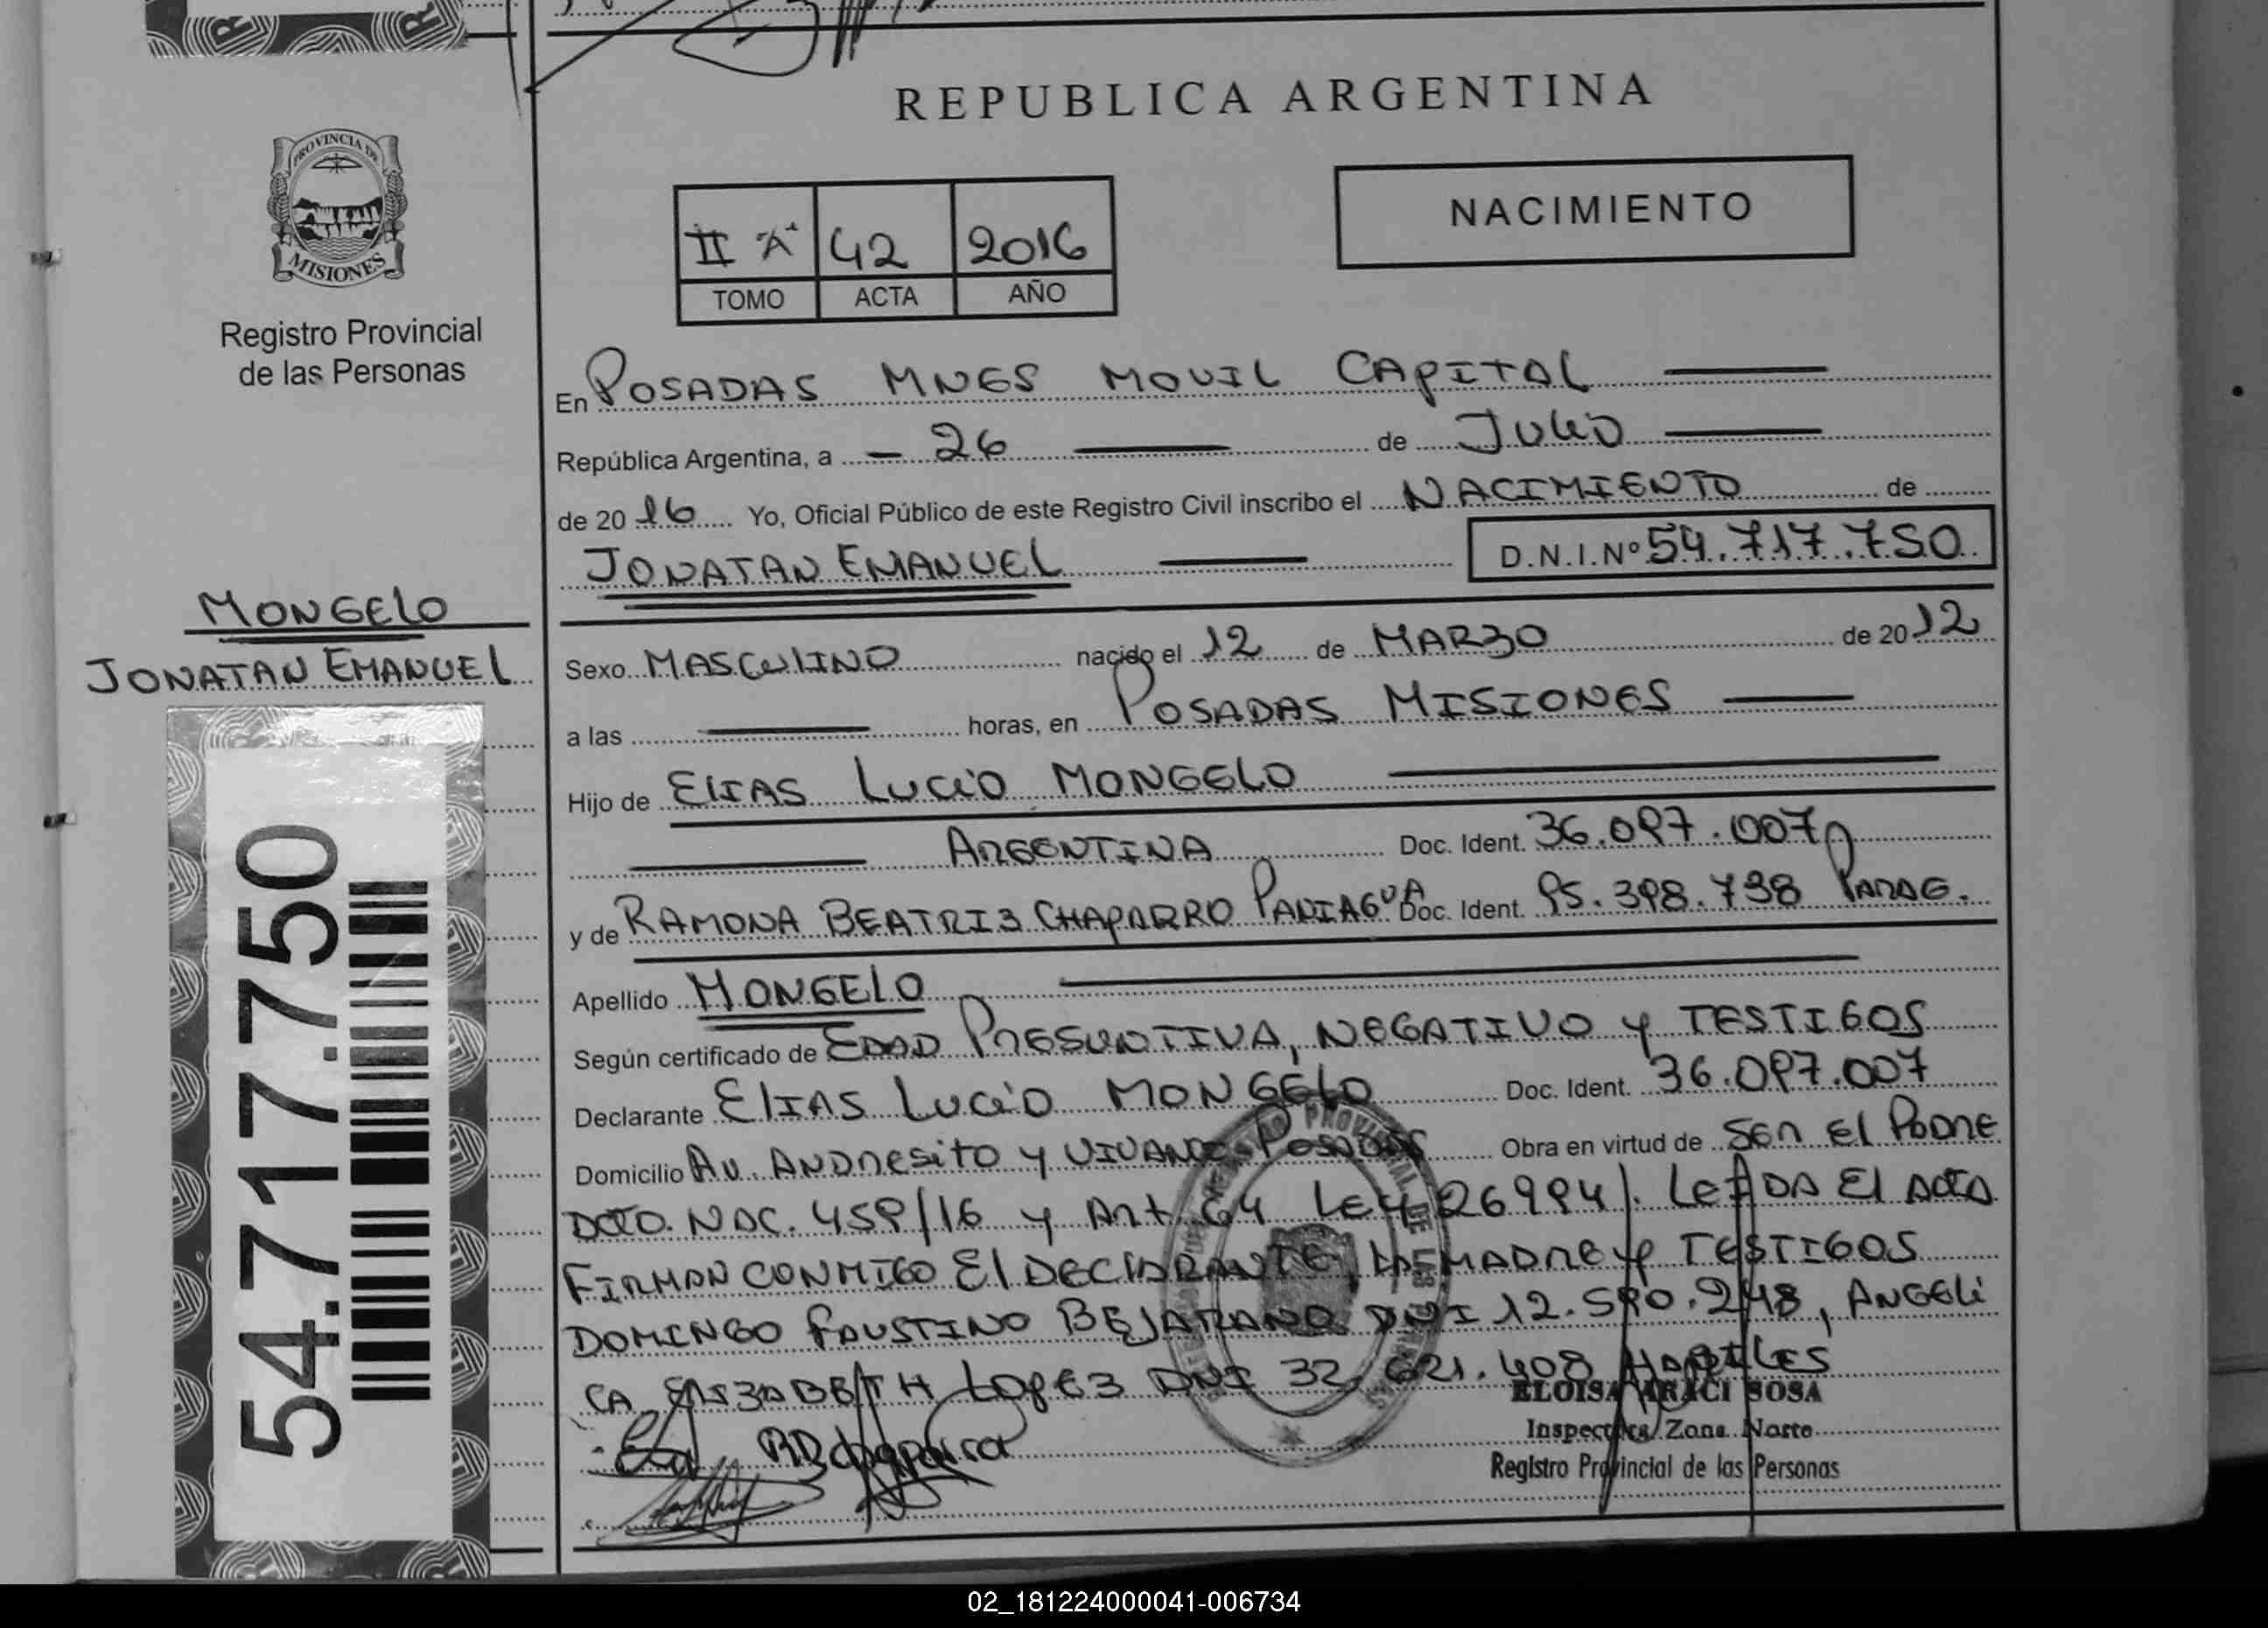 REPUBLICA ARGENTINA
PROVINCIA DE
MISIONES
Registro Provincial
de las Personas
NACIMIENTO
II "A" 42 2016
TOMO ACTA AÑO
En POSADAS MNES MOVIL CAPITAL
República Argentina, a 26 de JULIO
de 2016 Yo, Oficial Público de este Registro Civil inscribo el NACIMIENTO de
JONATAN EMANUEL D.N.I.Nº 54.717.750
MONGELO
JONATAN EMANUEL
54.717.750
Sexo MASCULINO nacido el 12 de MARZO de 2012
a las horas, en POSADAS MISIONES
Hijo de ELIAS LUCIO MONGELO
ARGENTINA Doc. Ident. 36.097.007
y de RAMONA BEATRIZ CHAPARRO PANIAGUA Doc. Ident. 95.398.738 PARAG.
Apellido MONGELO
Según certificado de EDAD PRESUNTIVA, NEGATIVO y TESTIGOS
Declarante ELIAS LUCIO MONGELO Doc. Ident. 36.097.007
Domicilio AV. ANDRESITO y VIVANCO POSADAS Obra en virtud de SER EL PADRE
DCTO. NAC. 459/16 y Art 64 LEY 26994/. LEIDA El ACTA
FIRMAN CONMIGO El DECLARANTE, LA MADRE y TESTIGOS
DOMINGO FAUSTINO BEJARANO DNI 12.590.248, ANGELI
CA ELIZABETH LOPEZ DNI 32.621.408 HABILES
ELOISA ARACI SOSA
RBchaparro
Inspectora Zona Norte
Registro Provincial de las Personas
02_181224000041-006734